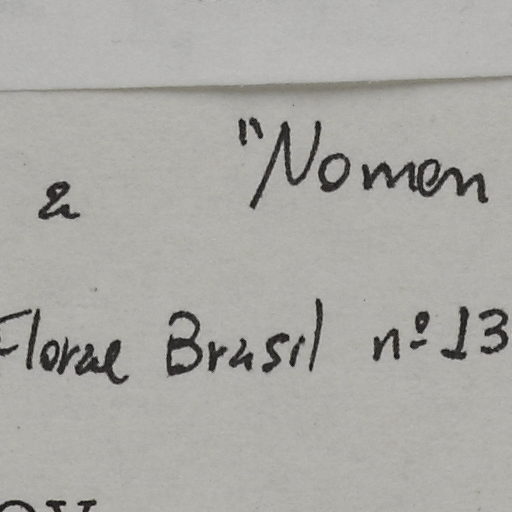 & "Nomen
Florae Brasil nº 13